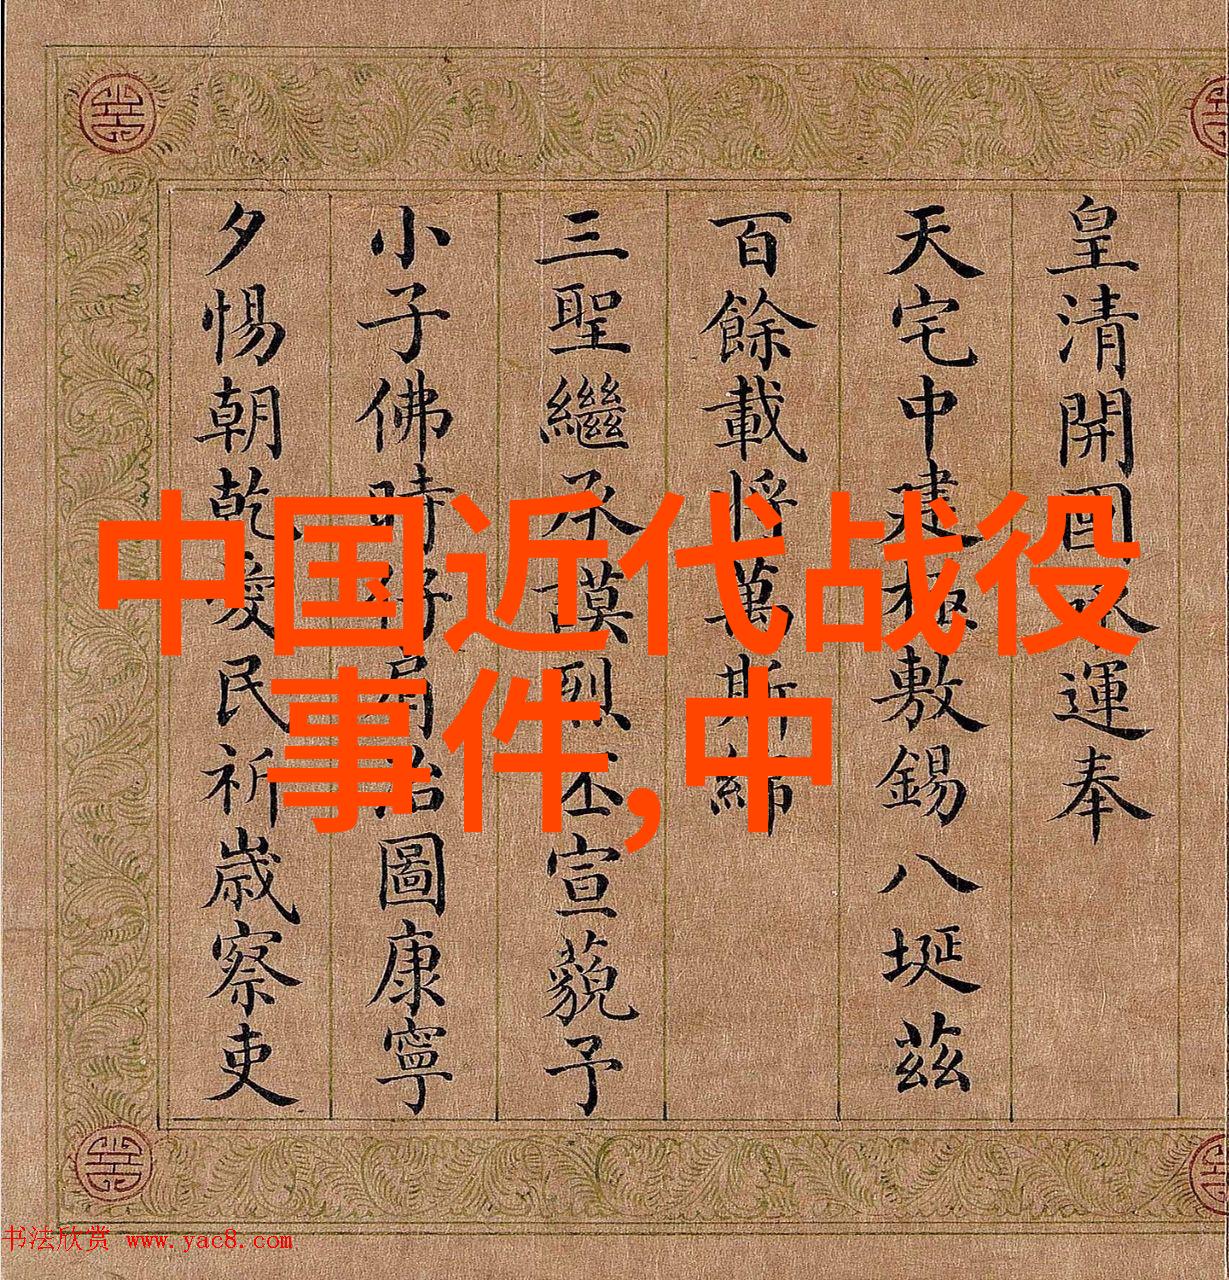 皇清開國承運奉
天宅中建極敷錫八埏茲
百餘載將萬斯綿
三聖繼承謨烈丕宣藐予
小子佛時仔肩治圖康寧
夕惕朝乾愛民祈歲察吏
中国近代战役
事件,中
书法欣赏 www.yac8.com